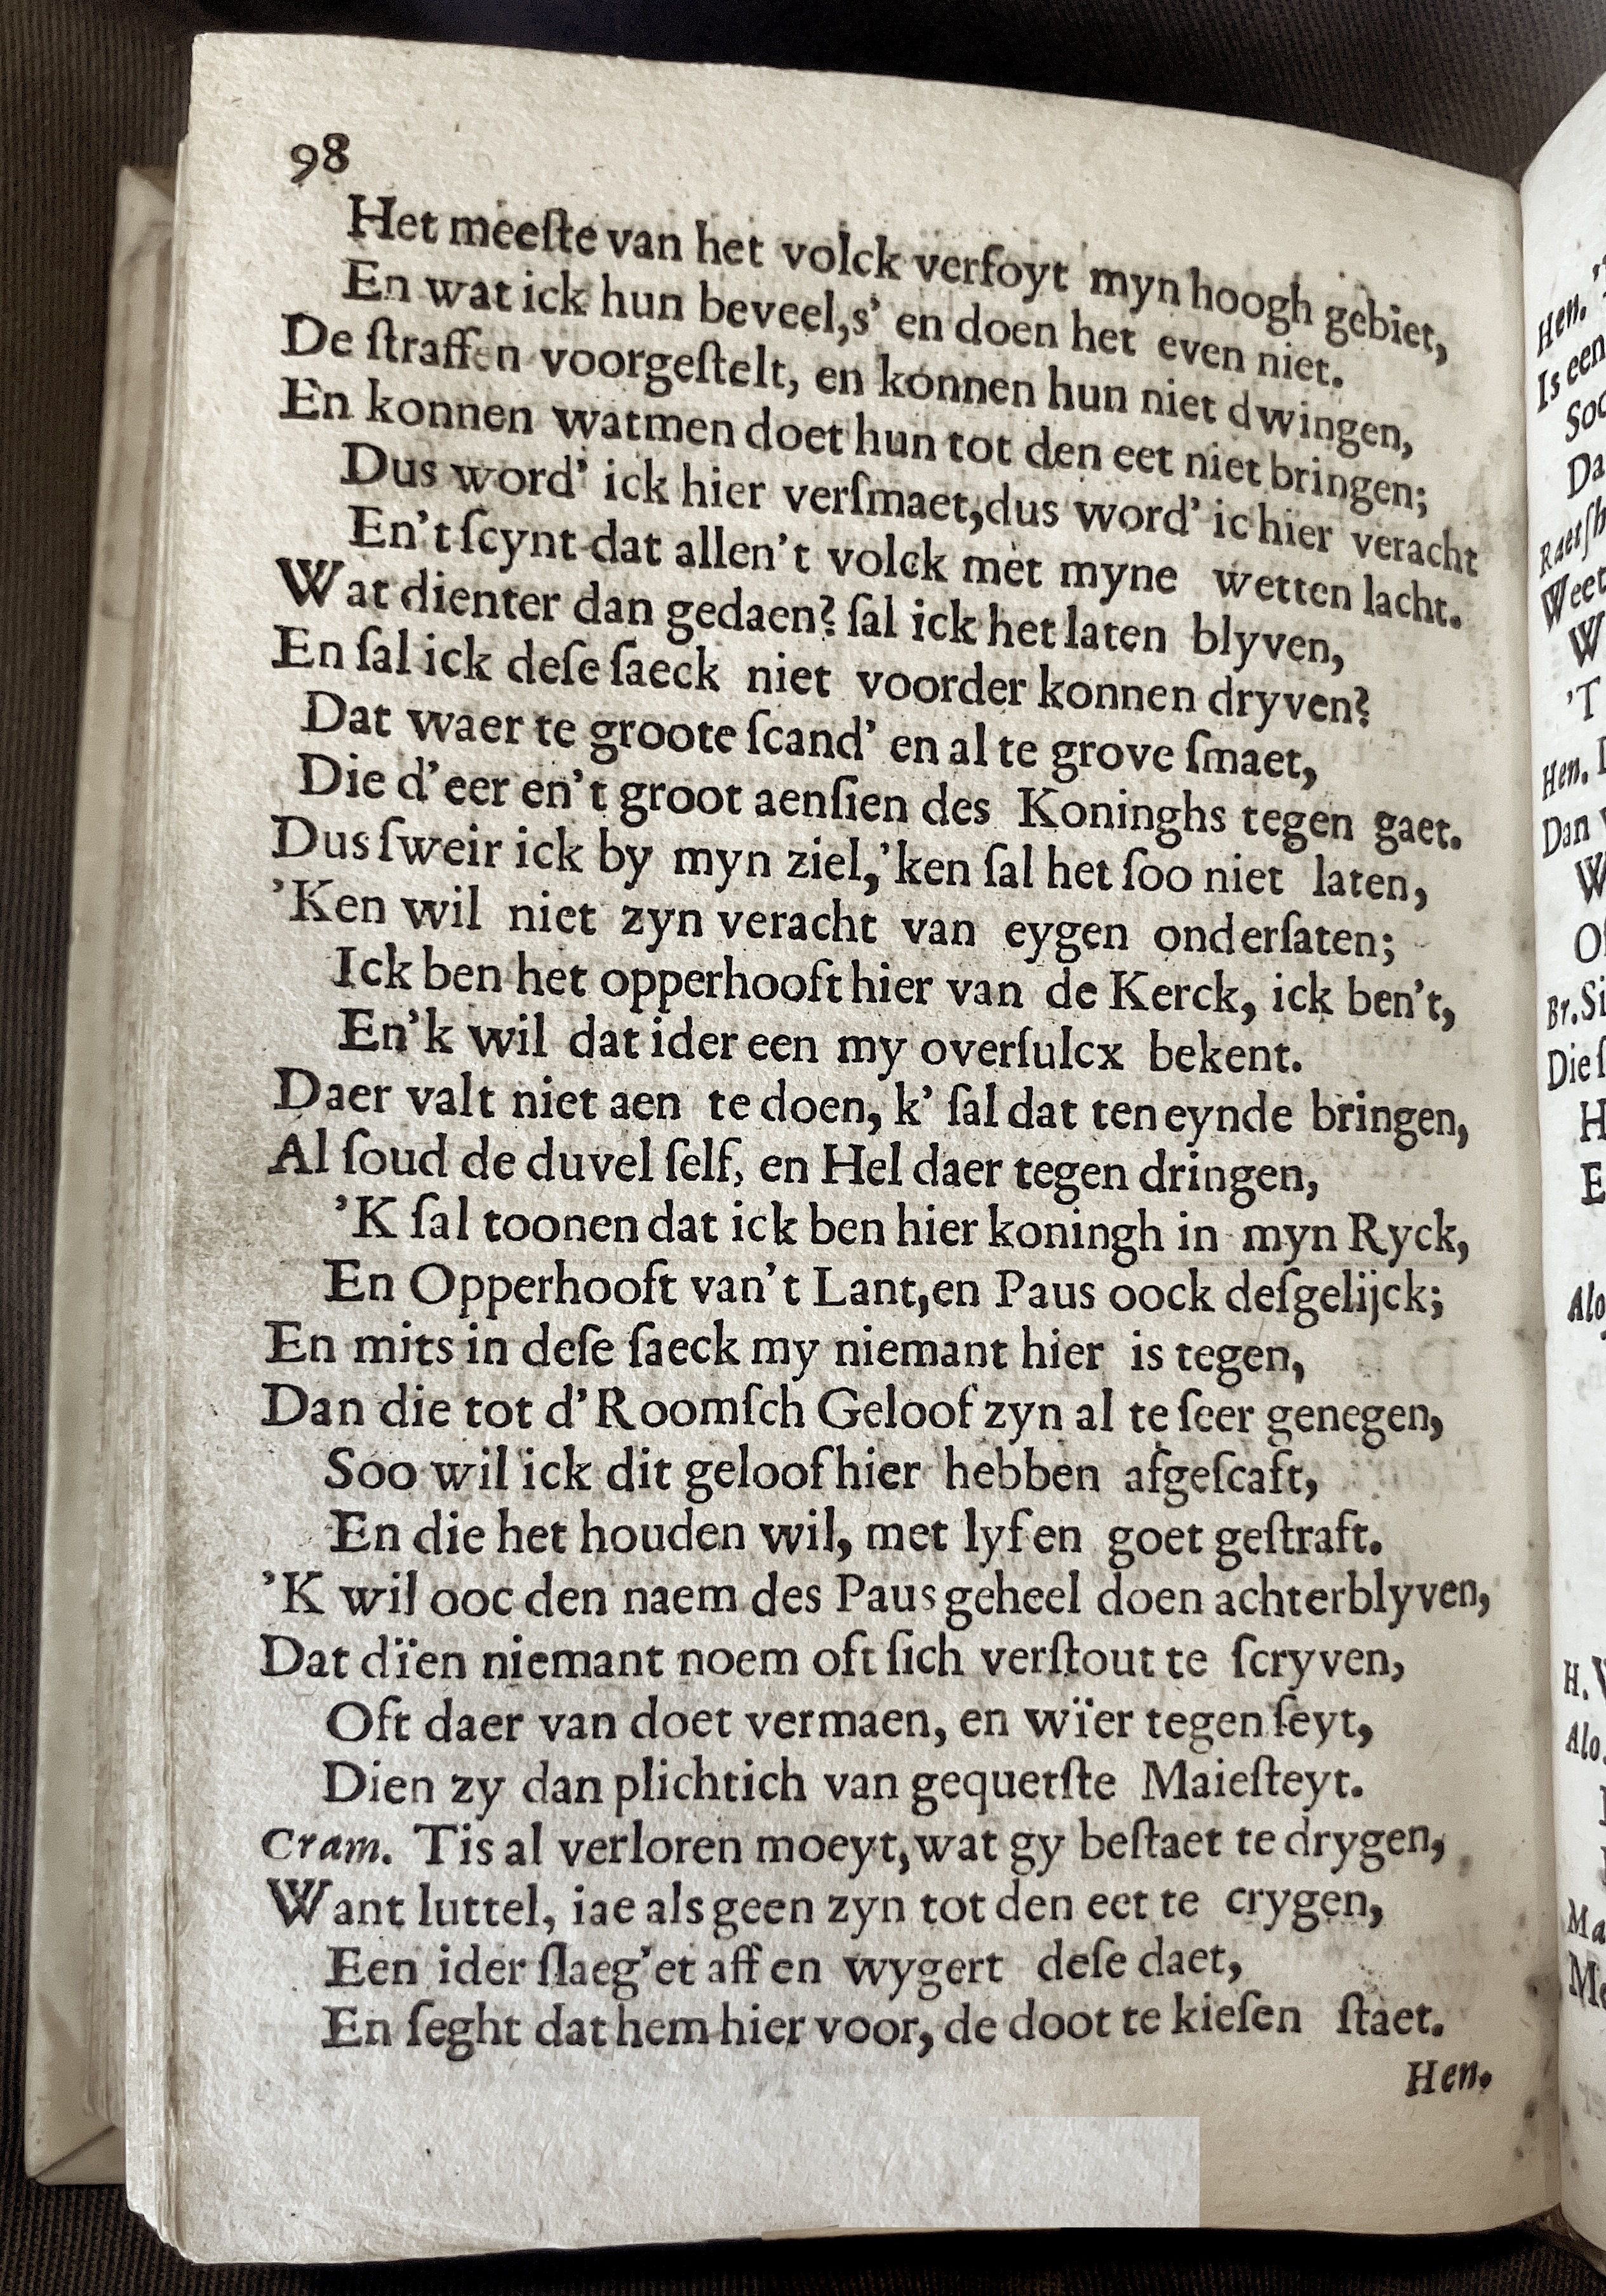 98
Het meeſte van het volck verfoyt myn hoogh gebiet,
En wat ick hun beveel,s' en doen het even niet.
De ſtraffen voorgeſtelt, en konnen hun niet dwingen,
En konnen watmen doet hun tot den eet niet bringen;
Dus word' ick hier verſmaet,dus word' ic hier veracht
En't ſcynt dat allen't volck met myne wetten lacht.
Wat dienter dan gedaen? ſal ick het laten blyven,
En ſal ick deſe ſaeck niet voorder konnen dryven?
Dat waer te groote ſcand' en al te grove ſmaet,
Die d'eer en't groot aenſien des Koninghs tegen gaet.
Dus ſweir ick by myn ziel,'ken ſal het ſoo niet laten,
'Ken wil niet zyn veracht van eygen onderſaten;
Ick ben het opperhooft hier van de Kerck, ick ben't,
En'k wil dat ider een my overſulcx bekent.
Daer valt niet aen te doen, k' ſal dat ten eynde bringen,
Al ſoud de duvel ſelf, en Hel daer tegen dringen,
'K ſal toonen dat ick ben hier koningh in myn Ryck,
En Opperhooft van't Lant,en Paus oock deſgelijck;
En mits in deſe ſaeck my niemant hier is tegen,
Dan die tot d'Roomſch Geloof zyn al te ſeer genegen,
Soo wil ick dit geloof hier hebben afgeſcaft,
En die het houden wil, met lyf en goet geſtraft.
'K wil ooc den naem des Paus geheel doen achterblyven,
Dat dïen niemant noem oft ſich verſtout te ſcryven,
Oft daer van doet vermaen, en wïer tegen ſeyt,
Dien zy dan plichtich van gequetſte Maieſteyt.
Cram. Tis al verloren moeyt,wat gy beſtaet te drygen,
Want luttel, iae als geen zyn tot den eet te crygen,
Een ider ſlaeg'et aff en wygert deſe daet,
En ſeght dat hem hier voor, de doot te kieſen ſtaet.
Hen.
Hen.
Is een
Soo
Da
Raetſh
Weet
W
'T
Hen. D
Dan
W
Of
Br. Si
Die ſ
H
E
Alo
H.
Alo.
Ma
Me